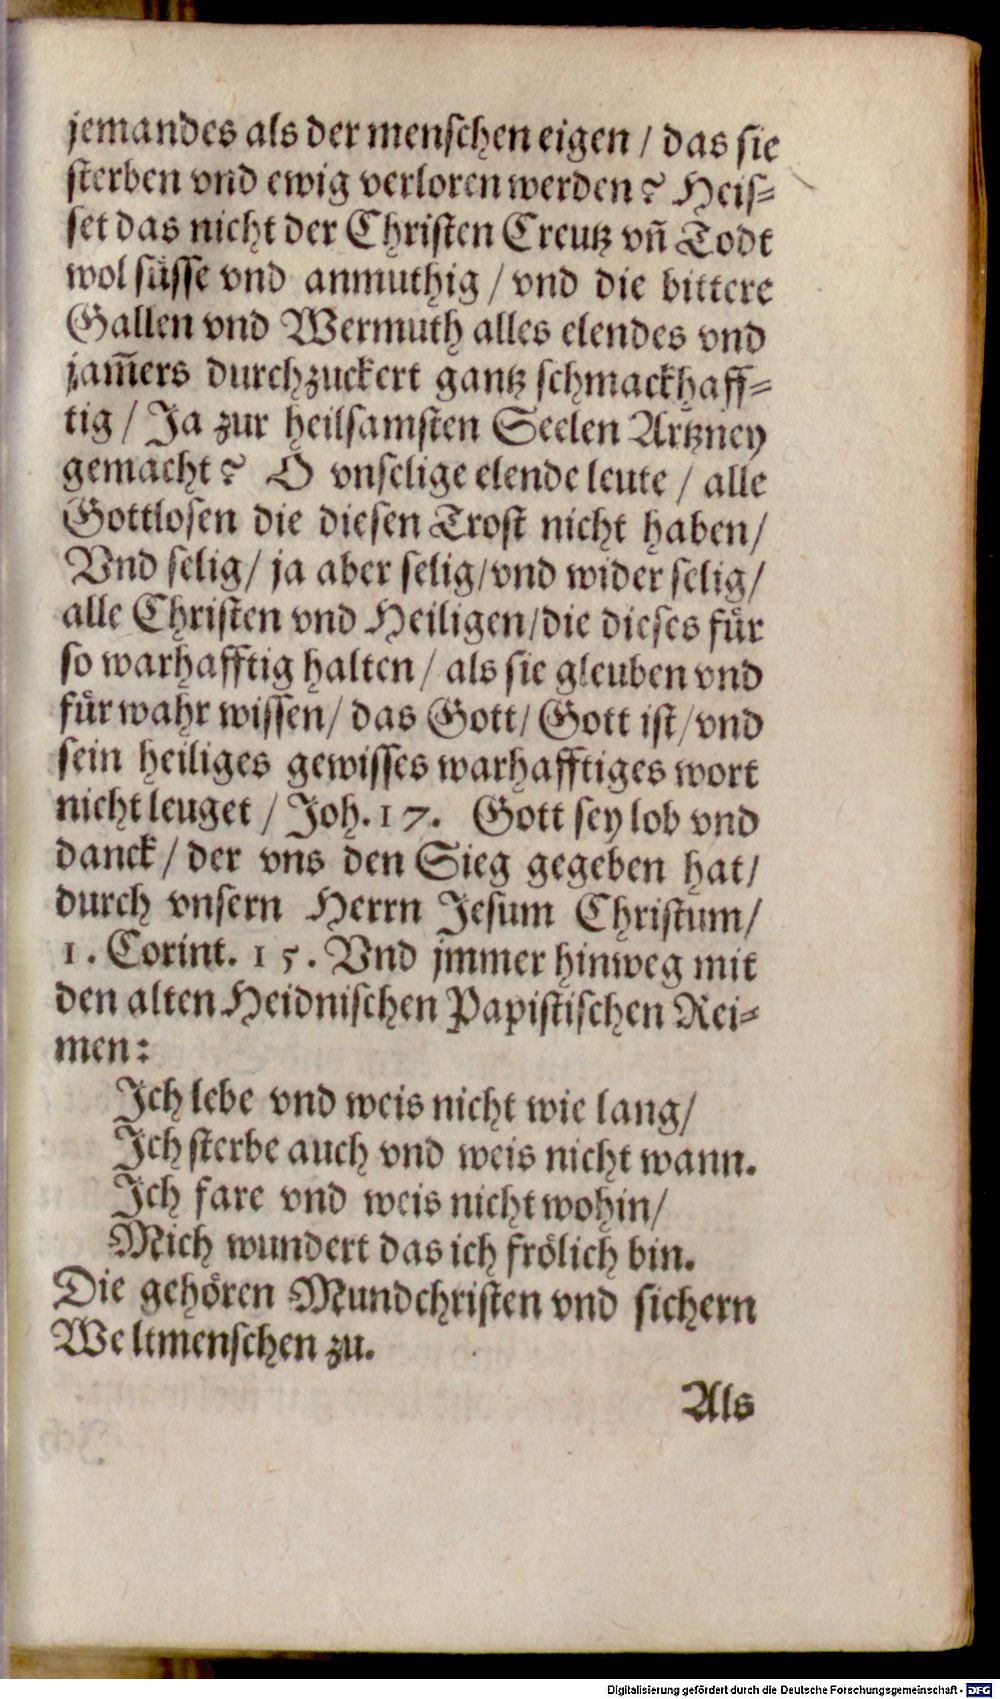 jemandes als der menschen eigen / das sie
sterben vnd ewig verloren werden? Heis-
set das nicht der Christen Creutz vñ Todt
wol süsse vnd anmuthig / vnd die bittere
Gallen vnd Wermuth alles elendes vnd
jam̃ers durchzuckert gantz schmackhaff-
tig / Ja zur heilsamsten Seelen Artzney
gemacht? O vnselige elende leute / alle
Gottlosen die diesen Trost nicht haben/
Vnd selig/ ja aber selig/vnd wider selig/
alle Christen vnd Heiligen/die dieses für
so warhafftig halten / als sie gleuben vnd
für wahr wissen/ das Gott/ Gott ist/vnd
sein heiliges gewisses warhafftiges wort
nicht leuget / Joh. 17. Gott sey lob vnd
danck / der vns den Sieg gegeben hat/
durch vnsern Herrn Jesum Christum/
1. Corint. 15. Vnd jmmer hinweg mit
den alten Heidnischen Papistischen Rei-
men:
Ich lebe vnd weis nicht wie lang/
Ich sterbe auch vnd weis nicht wann.
Ich fare vnd weis nicht wohin/
Mich wundert das ich frölich bin.
Die gehören Mundchristen vnd sichern
Weltmenschen zu.
Als
Digitalisierung gefördert durch die Deutsche Forschungsgemeinschaft - DFG